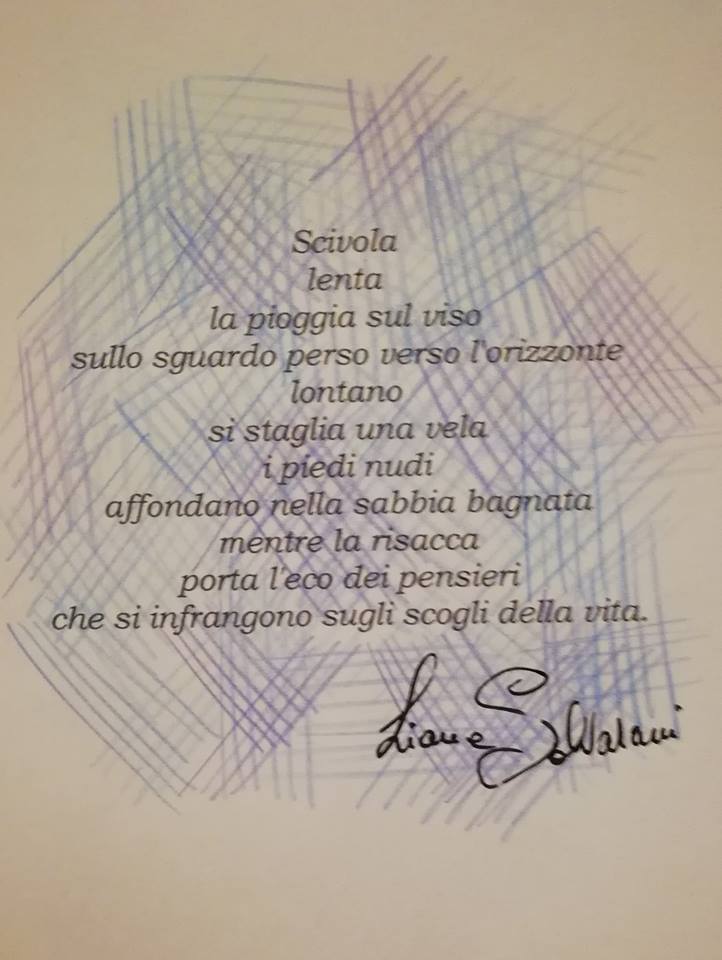 Scivola
lenta
la pioggia sul viso
sullo sguardo perso verso l'orizzonte
lontano
si staglia una vela
i piedi nudi
affondano nella sabbia bagnata
mentre la risacca
porta l'eco dei pensieri
che si infrangono sugli scogli della vita.